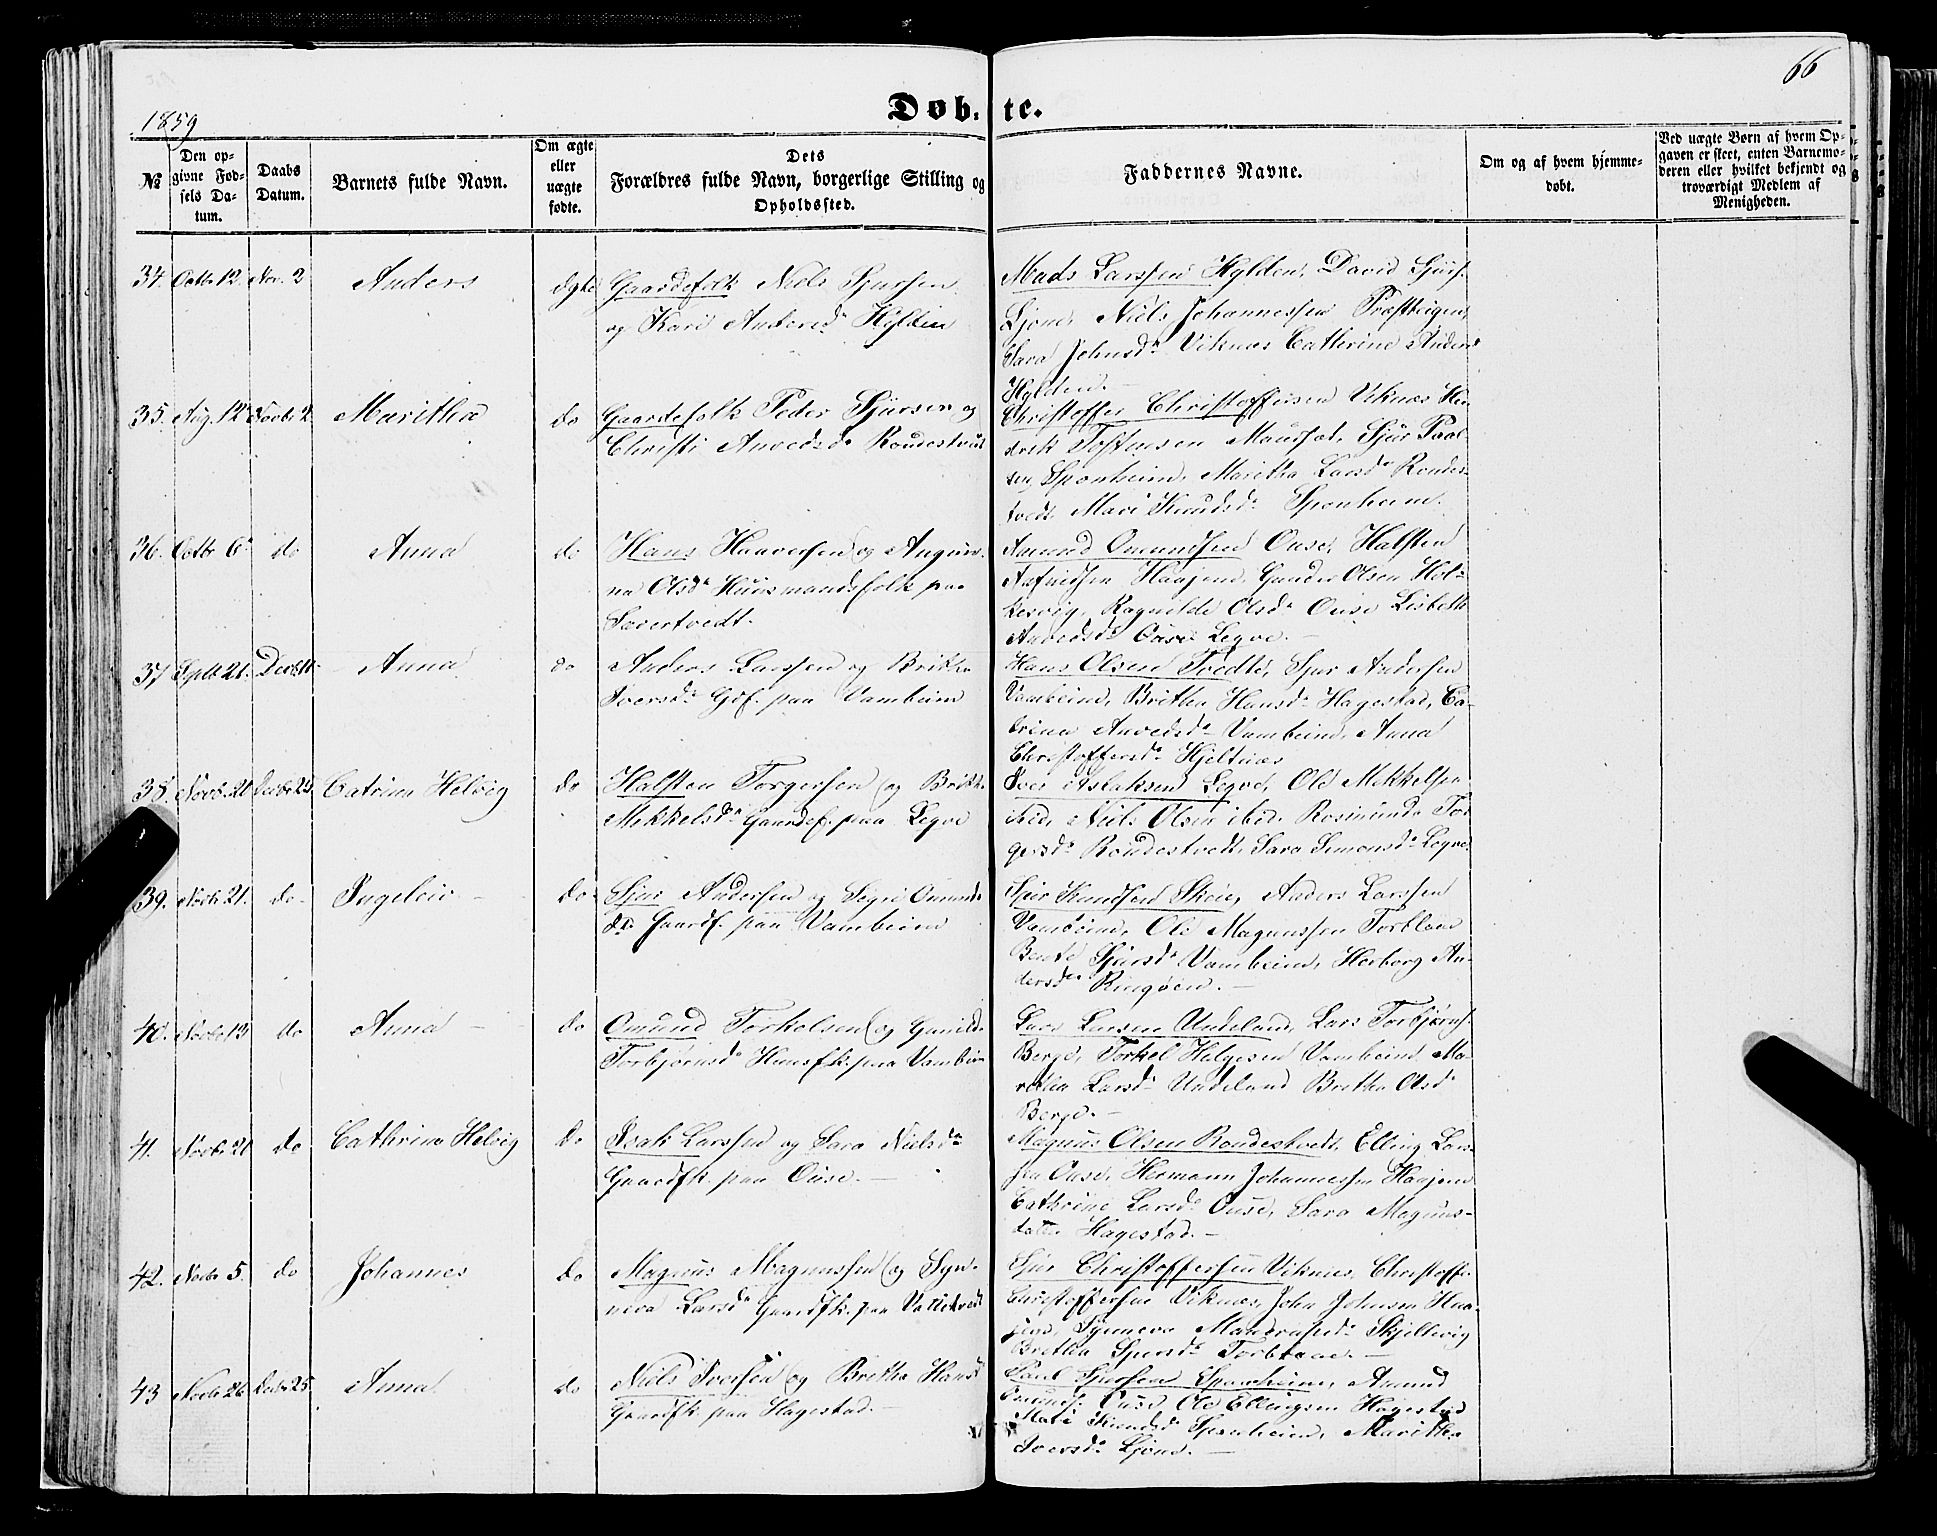 66
Døb- te.
1859
№
Den op-
givne Fød-
sels Da-
tum.
Daabs
Datum.
Barnets fulde Navn.
Om ægte
eller
uægte
fødte.
Dets
Forældres fulde Navn, borgerlige Stilling og
Opholdssted.
Faddernes Navne.
Om og af hvem hjemme-
døbt.
Ved uægte Børn af hvem Op-
gaven er skeet, enten Barnemo-
deren eller hvilket bekjendt og
troværdigt Medlem af
Menigheden.
34. Octbr 12. Nov. 2 Anders ægte Gaardefolk Niels Sjursen
og Kari Andersdr Hylden
Mads Larssen Hylden, David Sjurs.
Ljone, Niels Johannessen Præsteigen,
Sara Johnsdr Viknæs Cathrine Anders
Hylden.
35. Aug. 12 Novbr 2. Maritha do Gaardefolk Peder Sjursen og
Christi Anvedsdr Rondestvedt
Christoffer Christoffersen Viknæs Hen-
drik Tostensen Maursæt, Sjur Paal-
sen Sponheim, Maritha Larsdr Rondes-
tvedt Mari Knudsdr Sponheim.
36. Octbr 6 do Anna do Hans Haaversen og Angun-
na Olsdr Huusmandsfolk paa
Sævertvedt.
Amund Omundsen Ouse, Halsten
Haajem, Gunder Olsen Hol-
kesvig, Ragnilde Olsdr Ouse Lisbeth
Anvedsdr Ouse Legve.
37 Septb 21. Decbr 11 Anna do Anders Larssen og Britha
Iversdr Gdf. paa Vambeim
Hans Olsen Tvedte, Sjur Andersen
Vambeim, Britha Hansdr Hagestad, Ca-
trina Anvedsdr Vambeim, Anna
Christoffersdr Hjeltnæs
38. Novb. 20 Decbr 25 Catrina Helvig do Halsten Torgersen og Britha
Mikkelsdr Gaardf. paa Legve
Iver Aslaksen Legve, Ole Mikkelsen
ibid, Niels Olsen ibid. Rosmunda Tor-
gersdr Rondestvedt, Sara Simonsdr Legve
39. Novbr 21. do Ingeleiv do Sjur Andersen og Sigri Omunds
dr Gaardf. paa Vambeim
Sjur Knudsen Skeie, Anders Larssen
Vambeim, Ole Magnussen Torblaae
Bente Sjursdr Vambeim, Herborg An-
dersdr Ringøen.
40. Novbr 13 do Anna do Omund Torkelsen og Gunilde
Torbjørnsdr Huusfk. paa Vambeim
Lars Larsen Undeland, Lars Torbjørns.
Berge, Torkel Helgesen Vambeim, Ma-
ritha Larsdr Undeland Britha Olsdr
Berge.
41. Novbr 20 do Cathrina Helvig do Isak Larssen og Sara Nielsdr
Gaardfk. paa Ouse.
Magnus Olsen Rondestvedt, Elling Lars-
sen Ouse, Hermann Johannessen Haajem
Cathrine Larsdr Ouse, Sara Magnus-
datter Hagestad.
42. Novbr 5. do Johannes do Magnus Magnussen og Syn-
neva Larsdr Gaardfk. paa
Sjur Christoffersen Viknæs, Christoffer
Christoffersen Viknæs, John Johnsen Haa-
jem, Synneva Mandrupsdr Skjellevig
Britha Sjursdr Torblaae.
43 Novbr 26 Decbr 25. Anna do Niels Iversen og Britha Hansd
Gaardfk. paa Hagestad.
Paul Sjursen Sponheim, Amund
Omunds. Ouse, Ole Ellingsen Hagestad
Mari Knudsd Sponheim, Maritha
Iversdr Ljone.